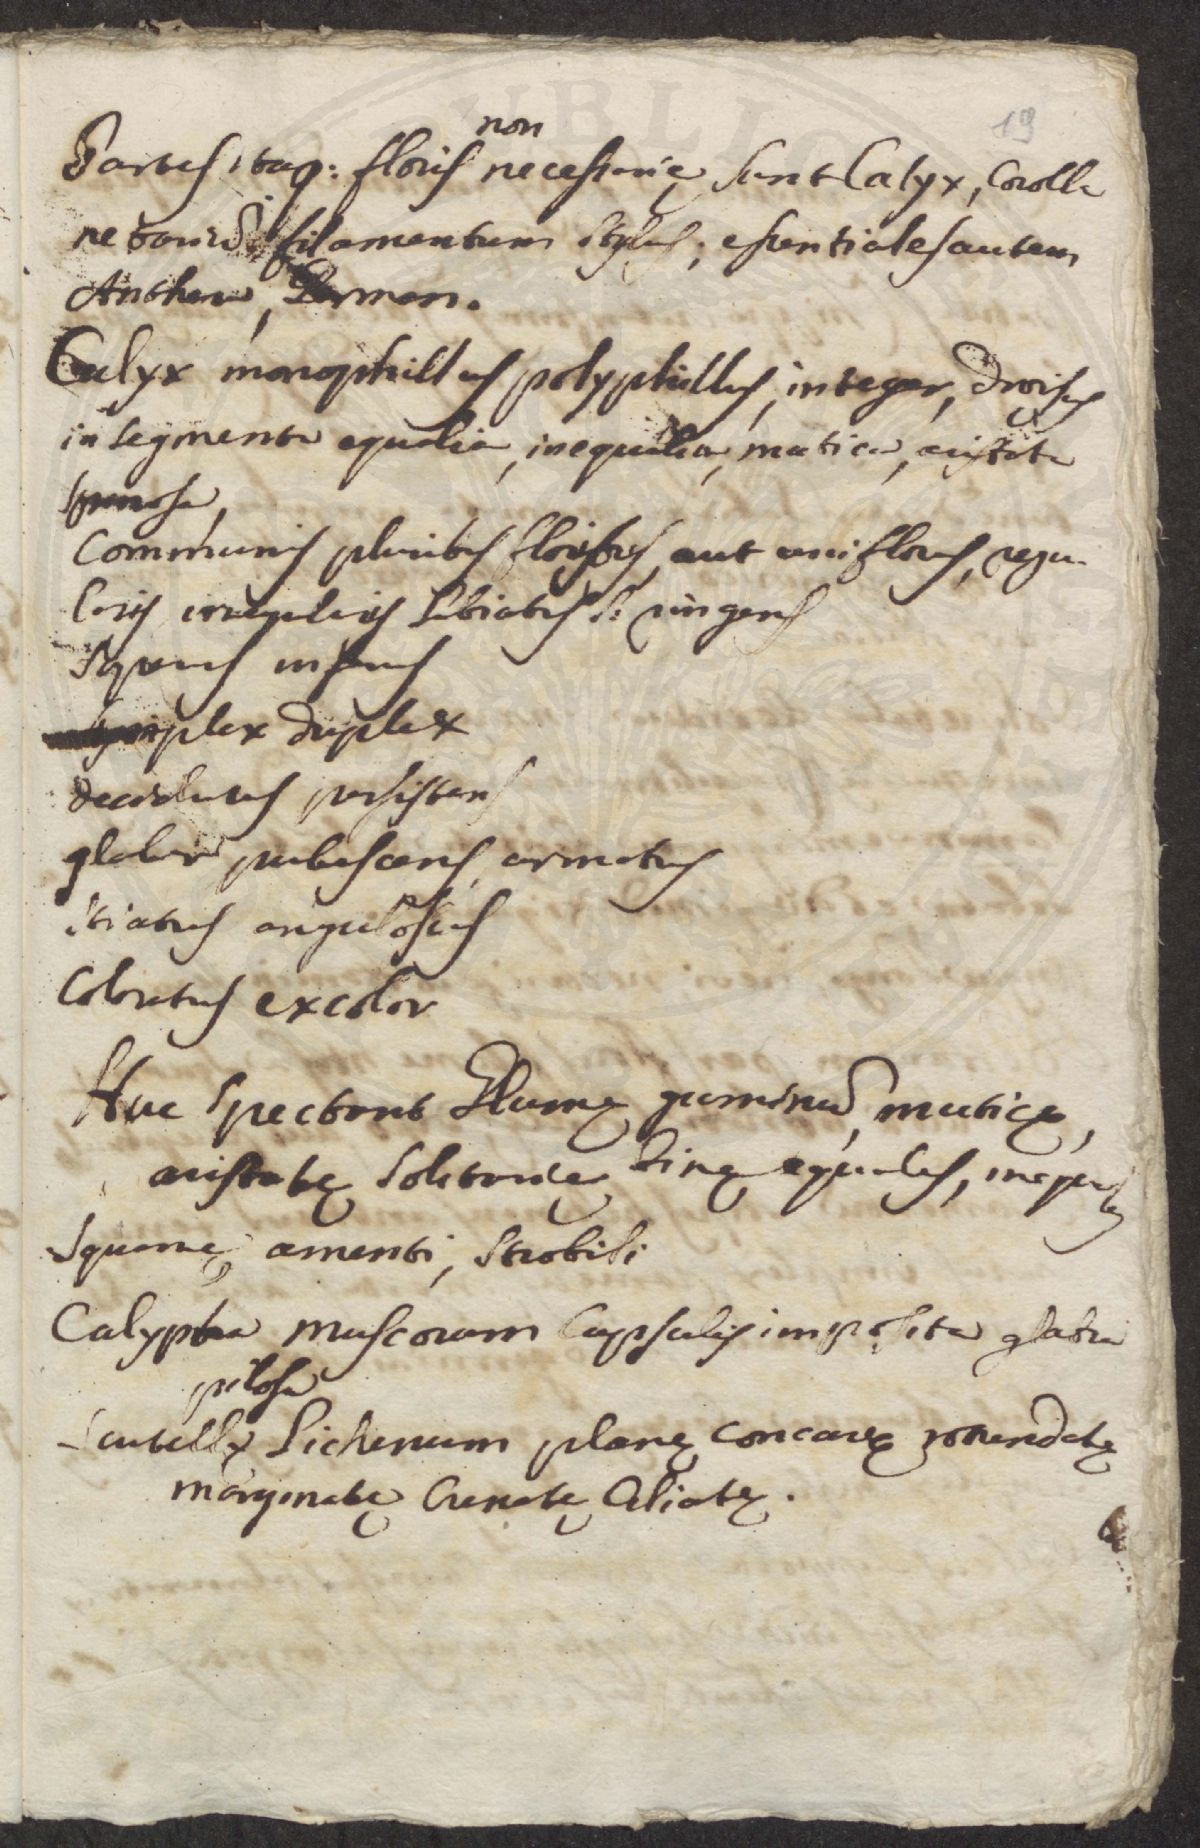 19
non
Partes itaq: floris necessarie sunt Calyx, Corolla
filamentum stylus; essentiales autem
Anthera, Germen.
Calyx monophillus polyphillus, integer, divisus
in segmenta equalia, inequalia, mutica, aristata
spinosa,
Communis pluribus floribus, aut uniflorus, regu-
laris irregularis labiatus s: ringens
superus inferus
simplex duplex
deciduus persistens
glaber pubescens, armatus
striatus angulosus
Coloratus excolor
Huc spectant Glumę graminũ, muticę,
aristatę solitarię binę equales, inequales
Squamę amenti, strobili
Calyptra muscorum Capsulis imposita glabra
pilosa
Scutellę Lichenum planę concavę rotundatę
marginatę Crenatę Ciliatę.